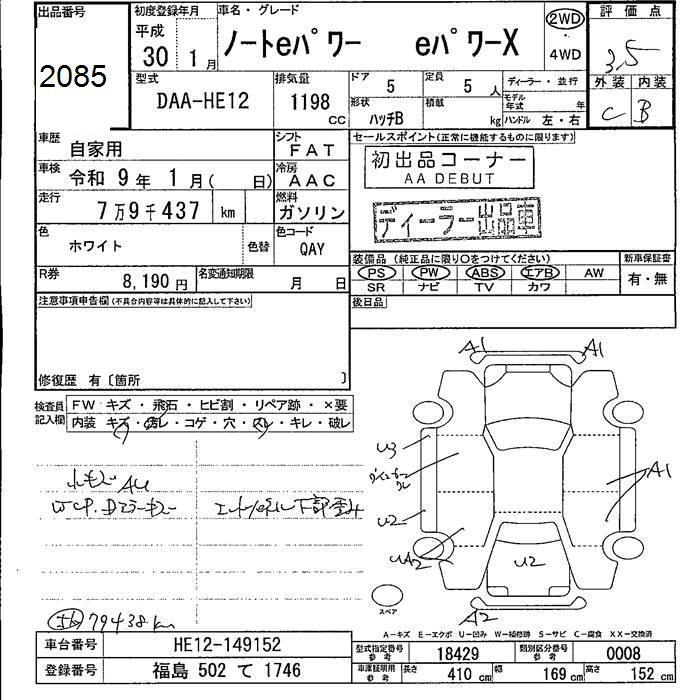 出品番号 初度登録年月 車名・グレード 評価点
2085 平成 30 1月 ノートeパワー eパワーX 2WD 4WD 3.5
型式 排気量 ドア 5 定員 5人 ディーラー・並行 外装 内装
DAA-HE12 1198 CC 形状 ハッチB 積載 kg モデル年式 年 ハンドル 左・右 C B
車歴 自家用 シフト FAT セールスポイント(正常に機能するものに限ります)
車検 令和 9年 1月( 日) 冷房 AAC 初出品コーナー
AA DEBUT
走行 7万9千437 km 燃料 ガソリン ディーラー出品車
色 ホワイト 色替 色コード QAY
装備品(純正品に限り〇をつけてください) 新車保証書
R券 8,190円 名変通知期限 月 日 PS PW ABS エアB AW 有・無
SR ナビ TV カワ
注意事項申告欄(不具合内容等は具体的に記入して下さい) 後日品
修復歴 有〔箇所 〕
検査員記入欄 FW キズ・飛石・ヒビ割・リペア跡・×要
内装 キズ・汚レ・コゲ・穴・スレ・キレ・破レ
A1 A1
U3
A1
U2
UA2
U2
A2
下部歪み
79438km
スペア
A-キズ E-エクボ U-凹み W-補修跡 S-サビ C-腐食 XX-交換済
車台番号 HE12-149152 型式指定番号 参考 18429 類別区分番号 参考 0008
登録番号 福島 502 て 1746 車庫証明用 参考 長さ 410 cm 幅 169 cm 高さ 152 cm